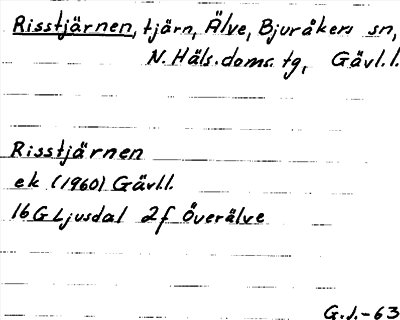 Risstjärnen, tjärn, Älve, Bjuråkers sn,
N. Häls. doms. tg, Gävl. l.
Risstjärnen
ek (1960) Gävll.
16G Ljusdal 2f Överälve
G.J.-63